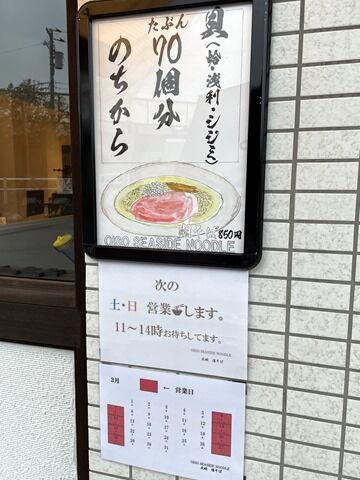 貝(蛤・浅利・シジミ)
たぶん
70個分
のちから
潮そば 850円
OISO SEASIDE NOODLE
次の
土・日 営業します。
11〜14時お待ちしてます。
OISO SEASIDE NOODLE
大磯 潮そば
3月
← 営業日
OISO SEASIDE NOODLE
大磯 潮そば